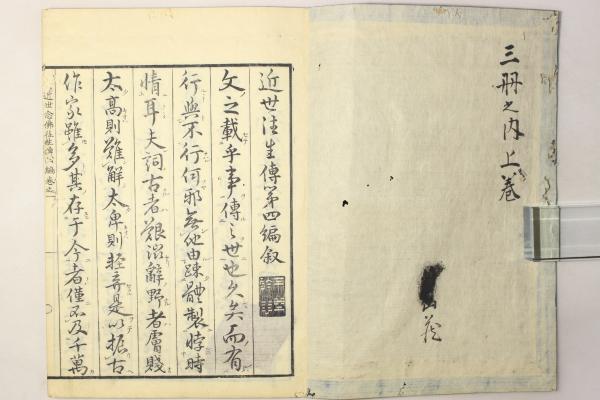 三册之内上巻
近世往生傳第四編叙
文之載乎事傳之世也久矣而有
行與不行何邪無他由疎體製悖時
情耳夫詞古者艱澁辭野者膚賤
太高則難解太卑則輕弃是以振古
作家雖多其存于今者僅不及千萬
近世念佛往生傳四編巻之一